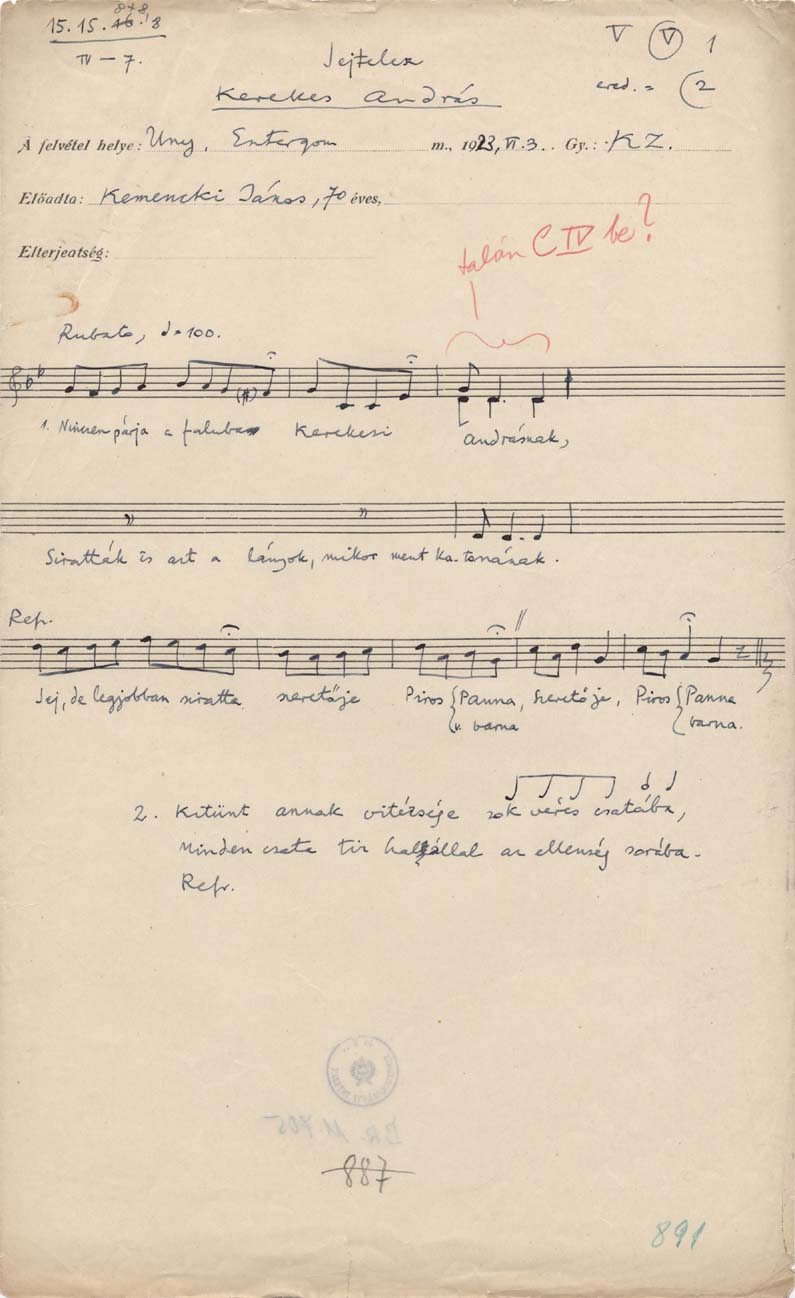 878,
15. 15. 16. 8
IV — 7.
V V 1
ered. = 2
Jejtelesz
Kerekes András
A felvétel helye: Uny, Esztergom m., 1923, VI. 3. Gy.: KZ.
Előadta: Kemencki János, 70 éves,
Elterjedtség:
talán C IV be?
Rubato, ♩=100.
1. Nincsen párja a faluba Kerekesi Andrásnak,
Siratták is azt a lányok, mikor ment ka-tonának.
Refr.
Jej, de legjobban siratta szeretője Piros {Panna, Szeretője, Piros {Panna
v. barna barna.
2. Kitünt annak vitézsége sok véres csatába,
Minden csata tiz halállal az ellenség sorába.
Refr.
887
891